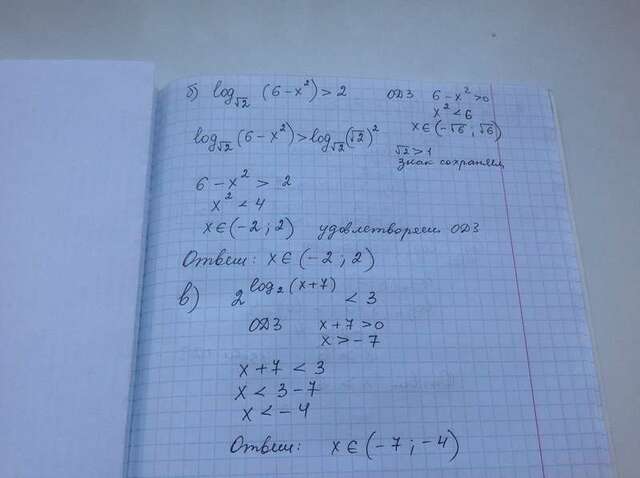 б) log√2 (6-x²) > 2 ОДЗ 6-x²>0
x² < 6
x∈(-√6; √6)
log√2 (6-x²) > log√2 (√2)²
√2 > 1
знак сохраняем
6-x² > 2
x² < 4
x∈(-2; 2) удовлетворяет ОДЗ
Ответ: x∈(-2; 2)
в) 2^log₂(x+7) < 3
ОДЗ x+7 >0
x>-7
x+7 < 3
x < 3-7
x < -4
Ответ: x∈(-7; -4)